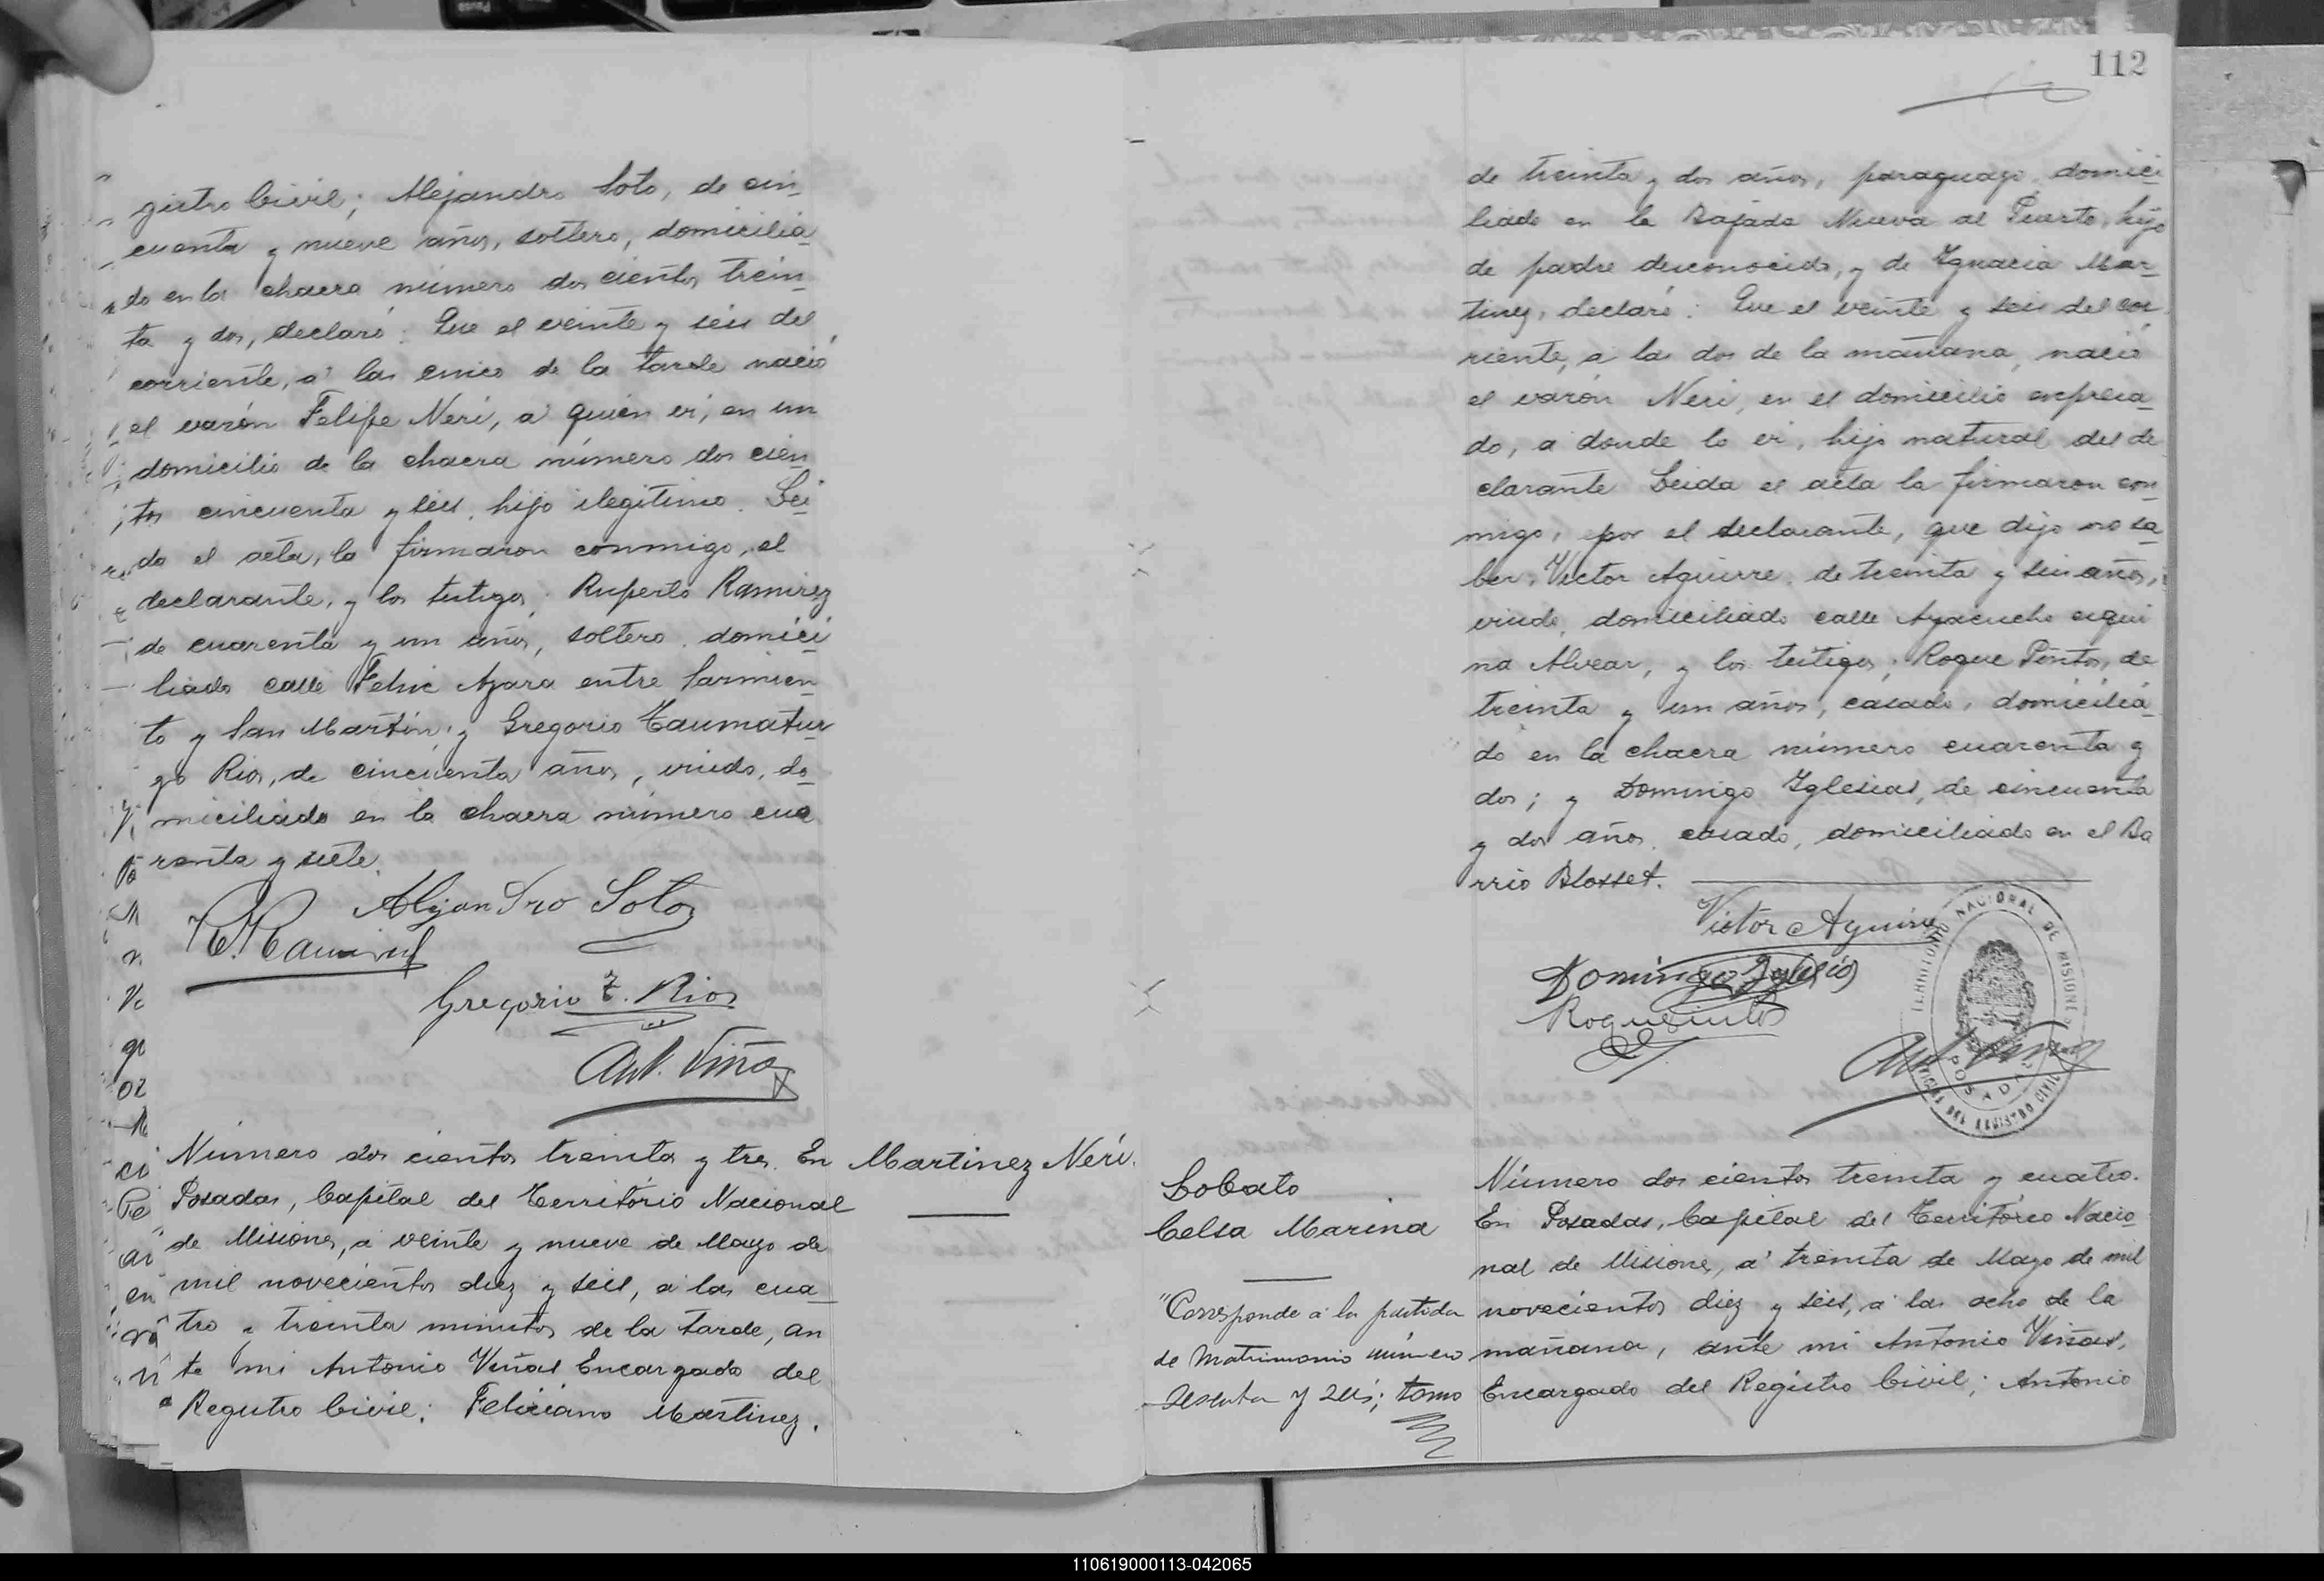 gistro Civil; Alejandro Soto, de cin_
cuenta y nueve años, soltero, domicilia_
do en la chacra número dos cientos trein_
ta y dos, declaró: Que el veinte y seis del
corriente, a' las cinco de la tarde nació
el varón Felipe Neri, a' quién ví, en un
domicilio de la chacra número dos cien_
tos cincuenta y seis, hijo ilegítimo. Lei_
da el acta, la firmaron conmigo, el
declarante, y los testigos; Ruperto Ramirez
de cuarenta y un años, soltero, domici_
liado calle Felix Azara entre Sarmien_
to y San Martín; y Gregorio Taumatur
go Rios, de cincuenta años, viudo, do_
miciliado en la chacra número cua
renta y siete.
Alejandro Soto
R. Ramirez
Gregorio T. Rios
Ant. Viñas
Número dos cientos treinta y tres. En
Posadas, Capital del Territorio Nacional
de Misiones, a veinte y nueve de Mayo de
mil novecientos diez y seis, a' las cua_
tro y treinta minutos de la tarde, an
te mi Antonio Viñas, Encargado del
Registro Civil; Feliciano Martinez,
Martinez Neri.
112
de treinta y dos años, paraguayo, domici_
liado en la Bajada Nueva al Puerto, hijo
de padre desconocido, y de Ignacia Mar_
tinez, declaró: Que el veinte y seis del cor_
riente, a las dos de la mañana, nació
el varón Neri, en el domicilio expresa_
do, a' donde lo ví, hijo natural del de_
clarante Leida el acta la firmaron con_
migo, por el declarante, que dijo no sa_
ber, Victor Aguirre, de treinta y seis años,
viudo, domiciliado calle Ayacucho esqui
na Alvear, y los testigos; Roque Pintos, de
treinta y un años, casado, domicilia_
do en la chacra número cuarenta y
dos; y Domingo Iglesias, de cincuenta
y dos años, casado, domiciliado en el Ba
rrio Blosset.
Victor Aguirre
Domingo Iglesias
Roque Pintos
Ant. Viñas
TERRITORIO NACIONAL DE MISIONES
POSADAS
OFICINA DEL REGISTRO CIVIL
Lobato
Celsa Marina
"Corresponde a la partida
de Matrimonio número
sesenta y seis; tomo
Número dos cientos treinta y cuatro.
En Posadas, Capital del Territorio Nacio_
nal de Misiones, a' treinta de Mayo de mil
novecientos diez y seis, a' las ocho de la
mañana, ante mi Antonio Viñas,
Encargado del Registro Civil; Antonio
110619000113-042065